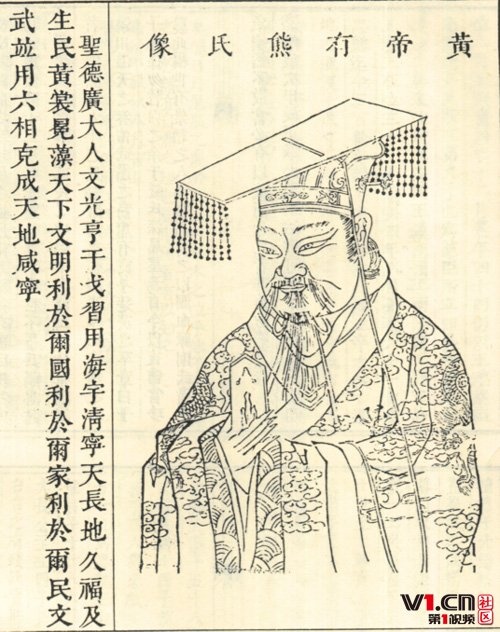 黃帝有熊氏像
聖德廣大人文光亨干戈習用海宇清寧天長地久福及
生民黃裳冕藻天下文明利於爾國利於爾家利於爾民文
武並用六相克成天地咸寧
V1.CN 社区
第1视频